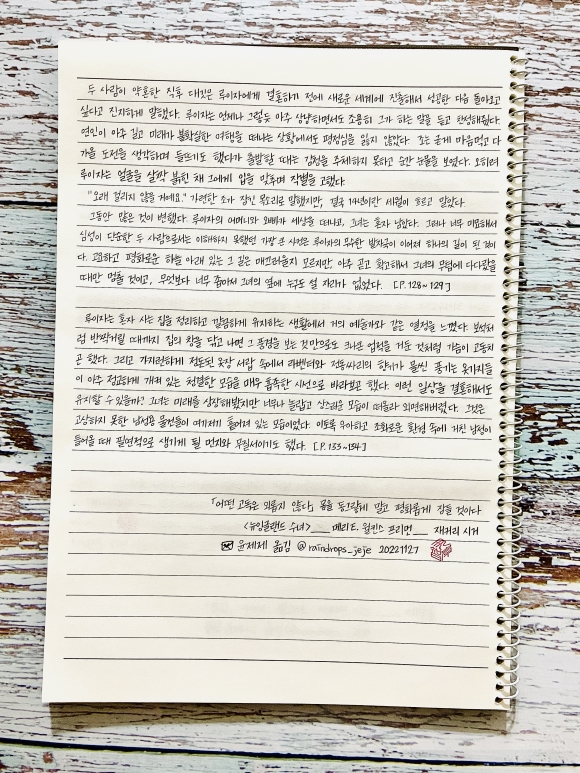 두 사람이 약혼한 직후 대깃은 루이자에게 결혼하기 전에 새로운 세계에 진출해서 성공한 다음 돌아오고
싶다고 진지하게 말했다. 루이자는 언제나 그렇듯 아주 상냥하면서도 조용히 그가 하는 말을 듣고 찬성해줬다.
연인이 아주 길고 미래가 불확실한 여행을 떠나는 상황에서도 평정심을 잃지 않았다. 조는 굳게 마음먹고 다
가올 도전을 생각하며 들뜨기도 했다가 출발할 때는 감정을 주체하지 못하고 순간 눈물을 보였다. 오히려
루이자는 얼굴을 살짝 붉힌 채 그에게 입을 맞추며 작별을 고했다.
"오래 걸리지 않을 거예요." 가련한 조가 잠긴 목소리로 말했지만, 결국 14년이란 세월이 흐르고 말았다.
그동안 많은 것이 변했다. 루이자의 어머니와 오빠가 세상을 떠나고, 그녀는 혼자 남았다. 그러나 너무 미묘해서
심성이 단순한 두 사람으로서는 이해하지 못했던 가장 큰 사건은 루이자의 무수한 발자국이 이어져 하나의 길이 된 것이
다. 고요하고 평화로운 하늘 아래 있는 그 길은 매끄러울지 모르지만, 아주 곧고 확고해서 그녀의 무덤에 다다랐을
때만 멈출 것이고, 무엇보다 너무 좁아서 그녀의 옆에 누구도 설 자리가 없었다. [P.128~129]
루이자는 혼자 사는 집을 정리하고 깔끔하게 유지하는 생활에서 거의 예술가와 같은 열정을 느꼈다. 보석처
럼 반짝거릴 때까지 집의 창을 닦고 나면 그 풍경을 보는 것만으로도 크나큰 업적을 거둔 것처럼 가슴이 고동치
곤 했다. 그리고 가지런하게 정돈된 옷장 서랍 속에서 라벤더와 전동싸리의 향취가 물씬 풍기는 옷가지들
이 아주 정교하게 개켜 있는 청결한 모습을 매우 흡족한 시선으로 바라보곤 했다. 이런 일상을 결혼해서도
유지할 수 있을까? 그녀는 미래를 상상해봤지만 너무나 놀랍고 상스러운 모습이 떠올라 외면해버렸다. 그것은
고상하지 못한 남성용 물건들이 여기저기 흩어져 있는 모습이었다. 이토록 우아하고 조화로운 환경 속에 거친 남성이
들어올 때 필연적으로 생기게 될 먼지와 무질서이기도 했다. [P.133~134]
「어떤 고독은 외롭지 않다」 몸을 둥그렇게 말고 평화롭게 잠들 것이다
〈뉴잉글랜드 수녀〉__ 메리 E. 윌킨스 프리먼__ 재커리 시거
윤제제 옮김 @raindrops_jeje 20221127